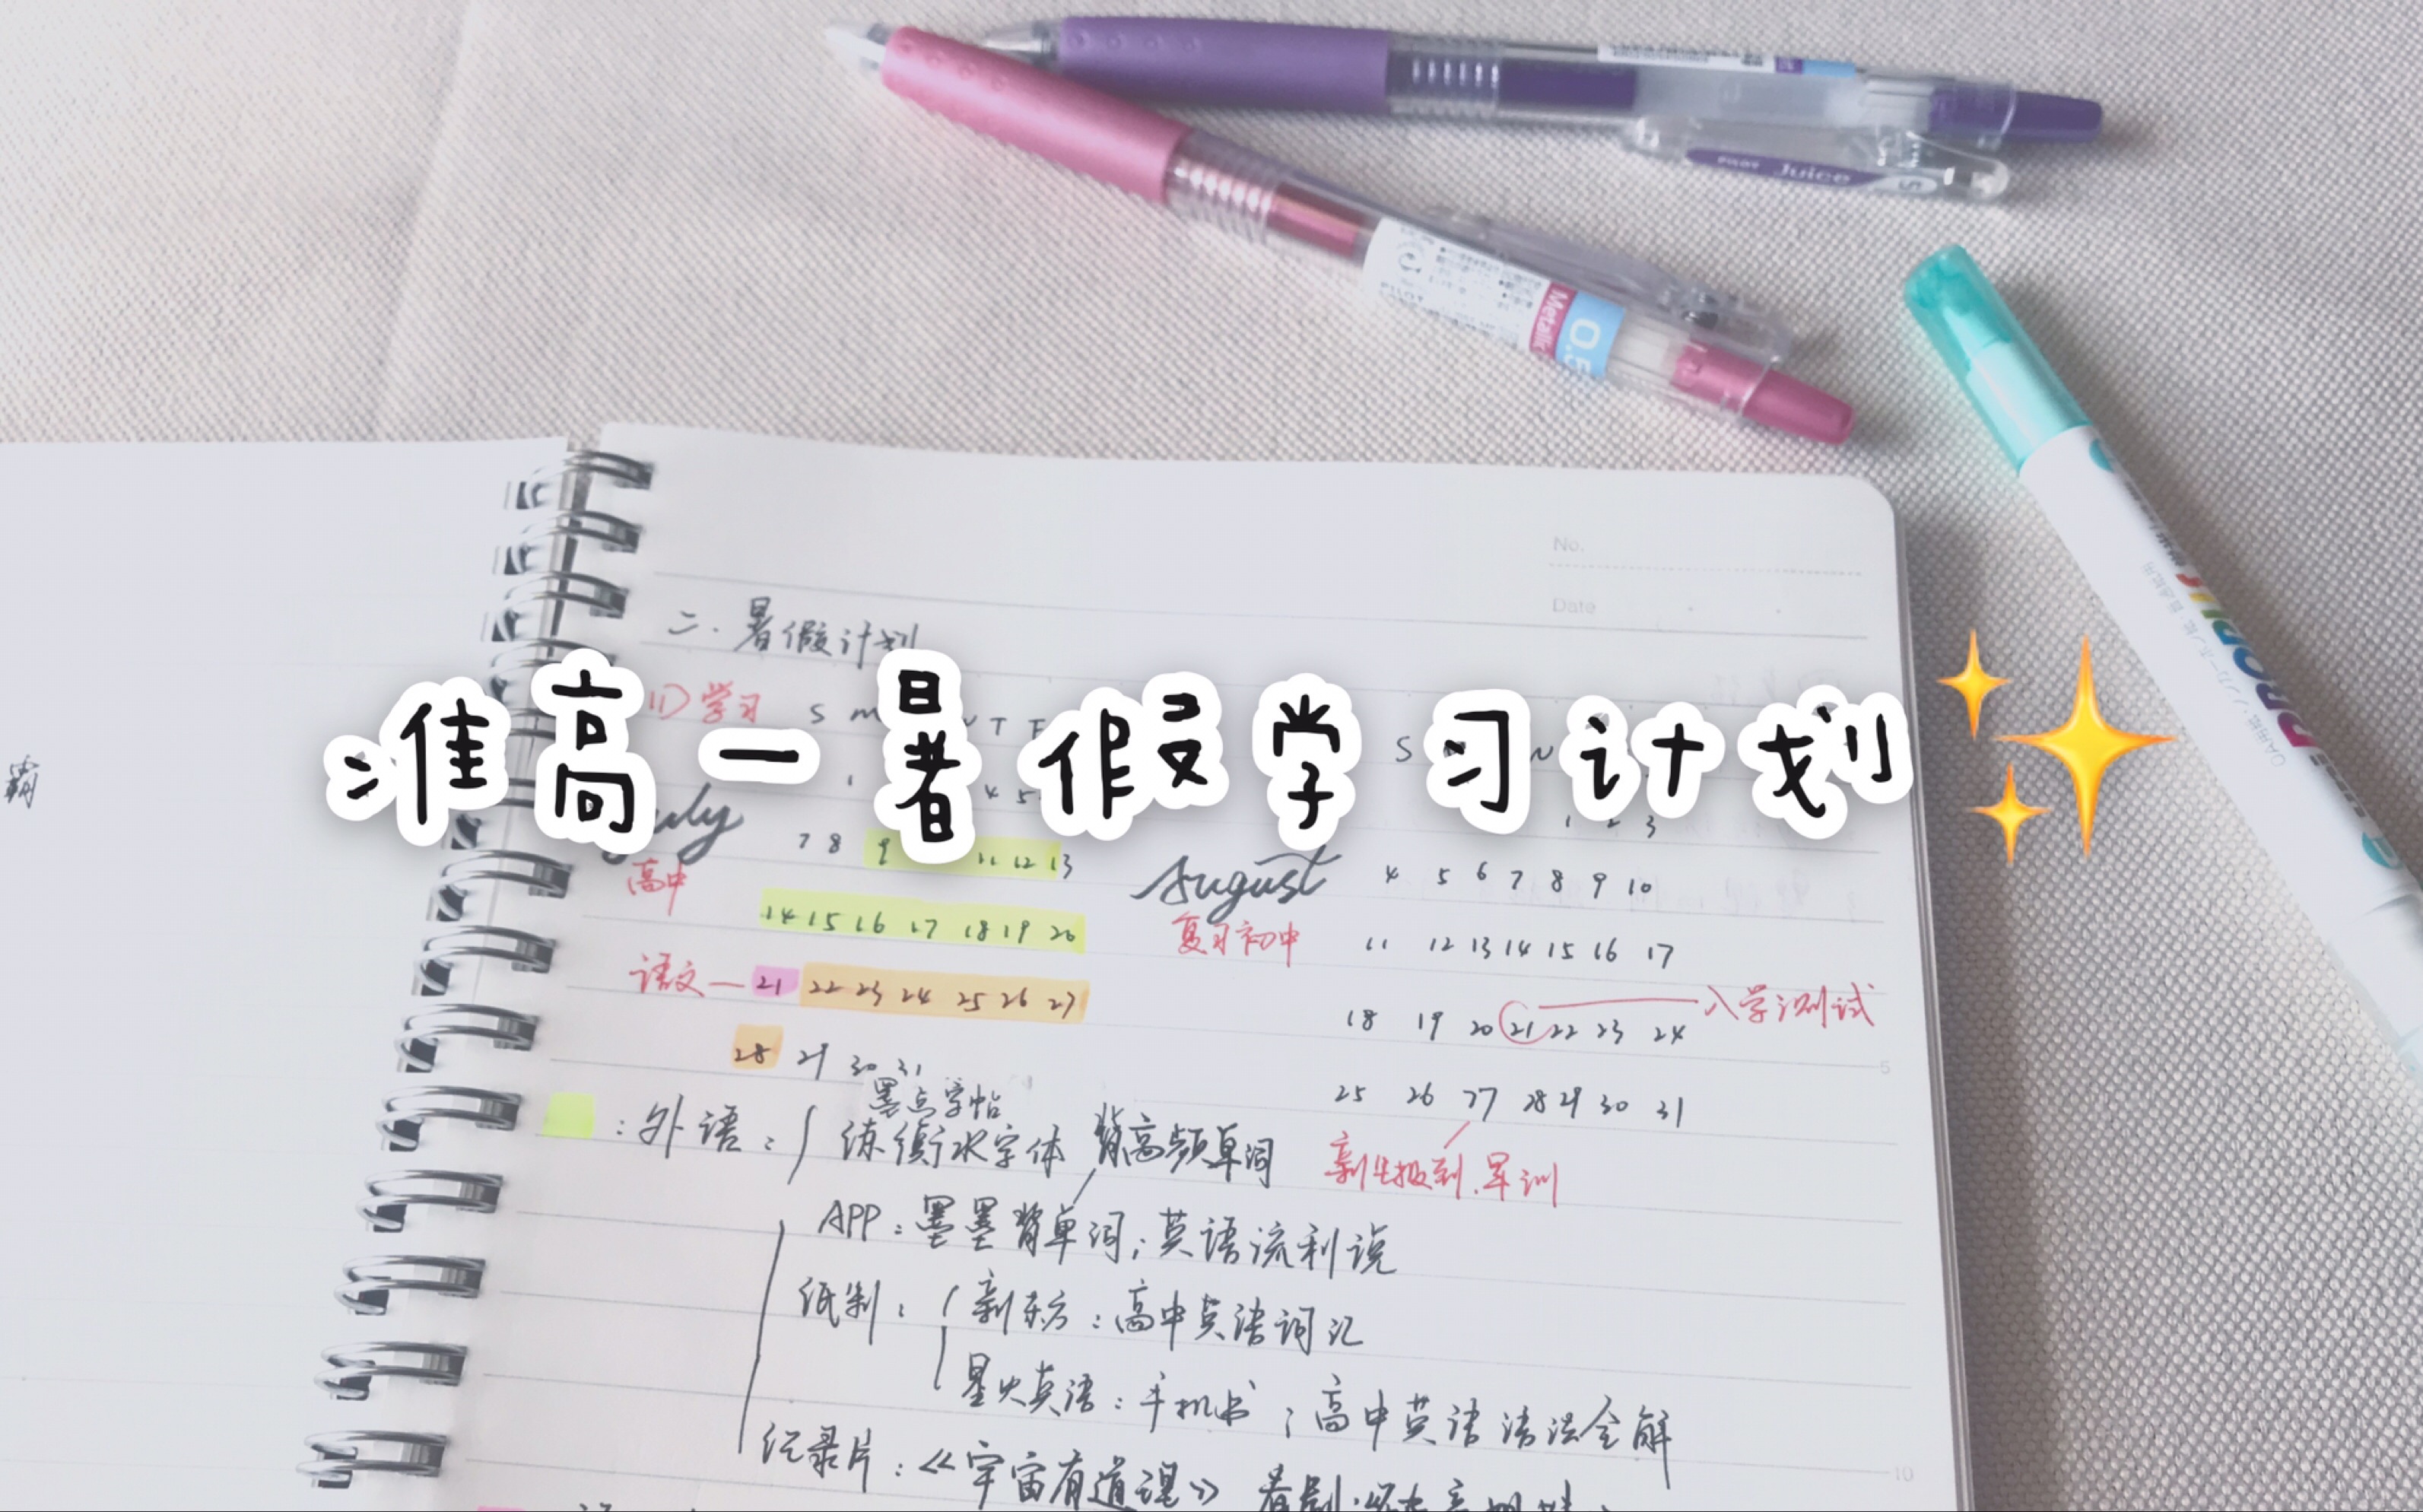 PILOT Juice
PILOT
Metallic
0.5
No.
Date
霸
二.暑假计划
准高一暑假学习计划
(1)学习 S M W T F
S
July
1 4 5
1 2 3
7 8 9 11 12 13
高中
August 4 5 6 7 8 9 10
14 15 16 17 18 19 20
复习初中 11 12 13 14 15 16 17
语文—21 22 23 24 25 26 27
18 19 20 21 22 23 24 入学测试
28 29 30 31
25 26 27 28 29 30 31
墨点字帖
:外语: 练衡水字体 背高频单词
新生报到.军训
APP:墨墨背单词;英语流利说
纸制: 新东方:高中英语词汇
星火英语:手机书;高中英语语法全解
纪录片:《宇宙有道理》 看剧:
5
10